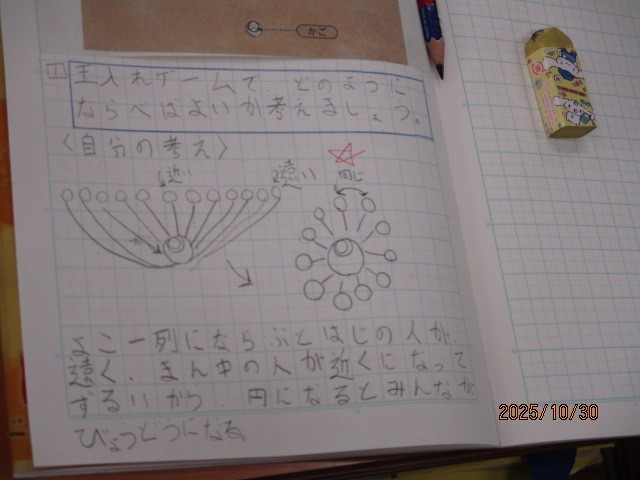 かご
1 玉入れゲームで、どのように
ならべばよいか考えましょう。
〈自分の考え〉
近い 遠い 同じ
よこ一列にならぶとはじの人が、
遠く、まん中の人が近くになって
ずるいから、円になるとみんなが
びょうどうになる。
2025/10/30